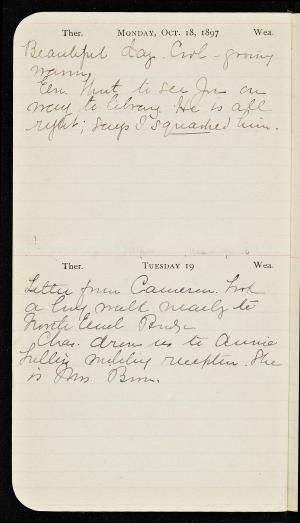 Ther. MONDAY, OCT. 18, 1897 Wea.
Beautiful day. Cool - growing
warm,
Eben Hunt to see Jon on
way to library. He is all
right; says I squashed him.
Ther. TUESDAY 19 Wea.
Letter from Cameron. Took
a long walk nearly to
North End Bridge
Chas. drove us to Annie
wedding reception. She
is Mrs. Brown.